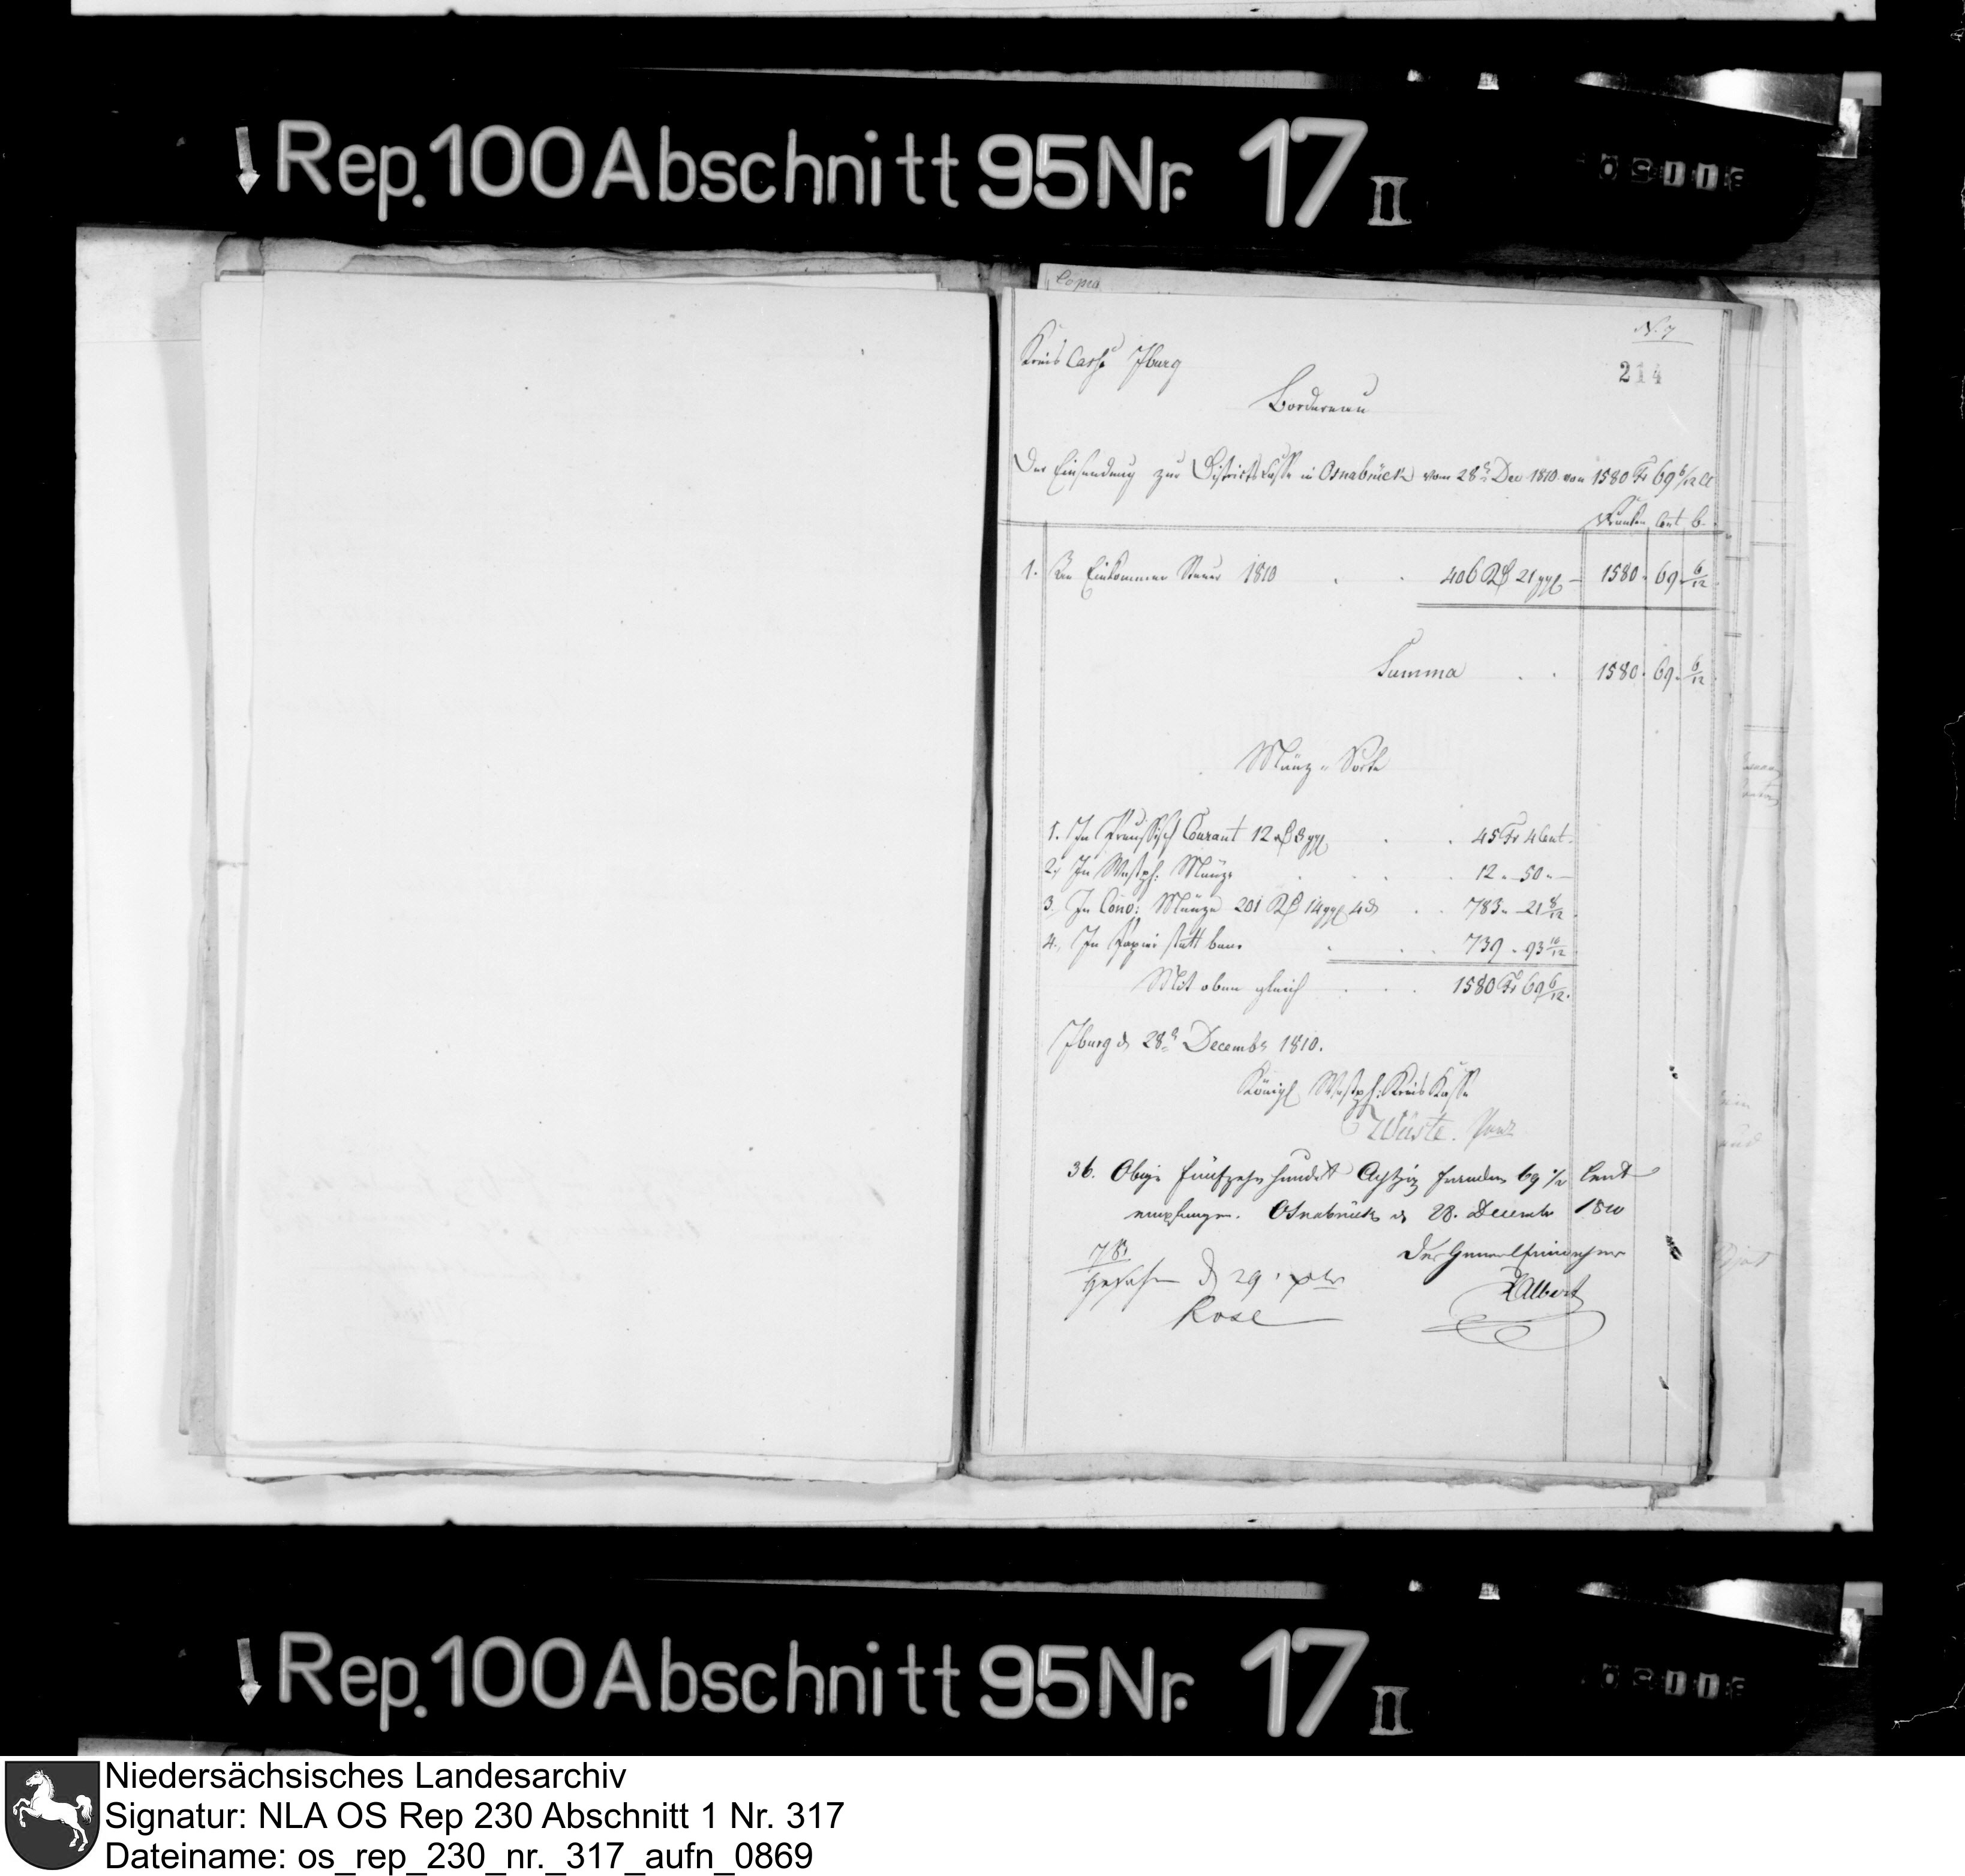 Rep. 100 Abschnitt 95 Nr. 17 II
Copia
N. 7
Kreis Casse Iburg
214
Bordereau
Der Einsendung zur Districts Casse in Osnabrück vom 28t Dec 1810 von 1580 Fr 69 6/12 Ct
Franken Cent b.
1. An Einkommen Steuer 1810 . . 406 Rthlr 21 ggl – 1580. 69. 6/12
Summa . . 1580. 69. 6/12
Münz-Sorte
1. In Preussisch Courant 12 Rthlr 8 ggl . . 45 Fr 4 Cent.
2. In Westph: Münze . . . . 12 " 50 " –
3. In Conv: Münze 201 Rthlr 14 ggl 4 d . . 783 " 21 8/12
4. In Papier statt baar . . . 739 " 93 10/12
Mit oben gleich . . . 1580 Fr 69 6/12.
Iburg d 28t Decembr 1810.
Königl Westph: Kreis Kasse
Wüste.
36. Obige fünfzehn hundert Achtzig franken 69 1/2 Cent
empfangen. Osnabrück d 28. Decembr 1810
Der General Einnehmer
Gesehen d 29.
Albert
Rose
Rep. 100 Abschnitt 95 Nr. 17 II
Niedersächsisches Landesarchiv
Signatur: NLA OS Rep 230 Abschnitt 1 Nr. 317
Dateiname: os_rep_230_nr._317_aufn_0869